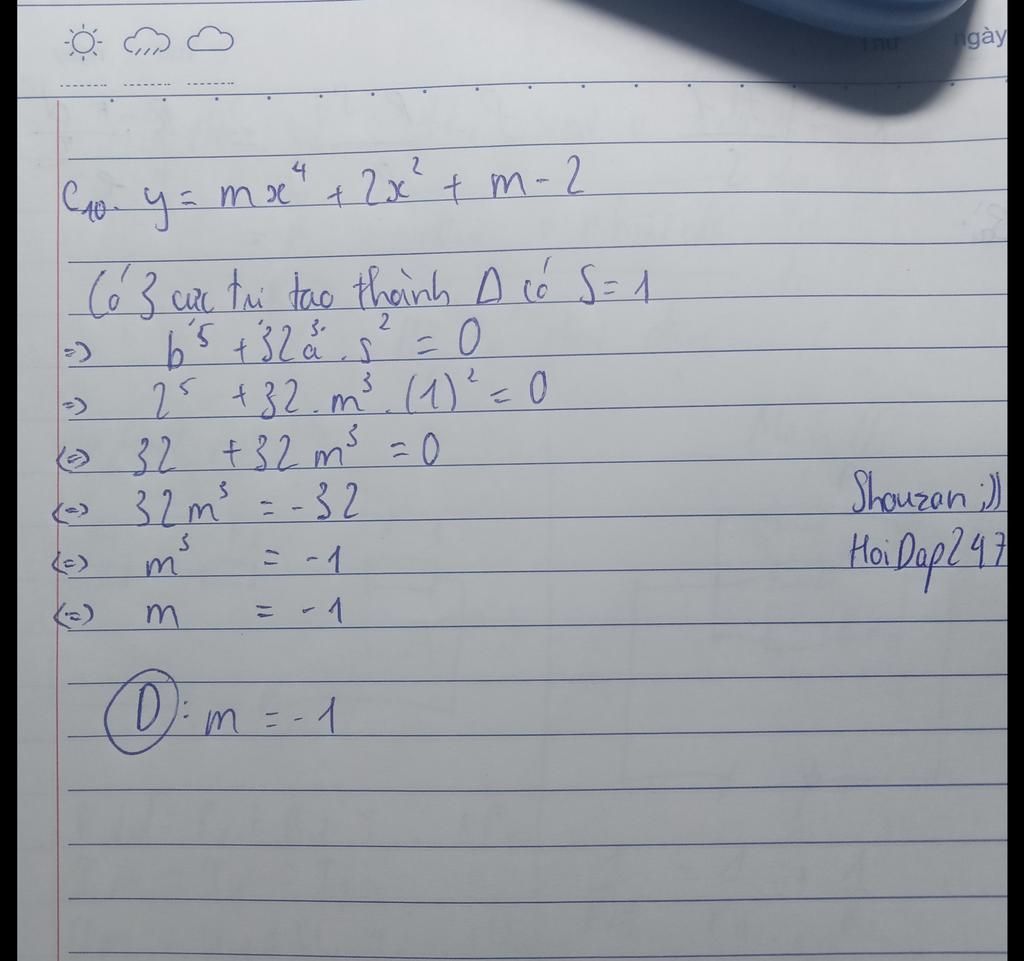 Thứ ngày
C10. y = mx⁴ + 2x² + m - 2
Có 3 cực trị tạo thành Δ có S = 1
=> b⁵ + 32a³. s² = 0
=> 2⁵ + 32. m³. (1)² = 0
<=> 32 + 32m³ = 0
<=> 32m³ = -32
Shouzan ;))
<=> m³ = -1
HoiDap247
<=> m = -1
D: m = -1